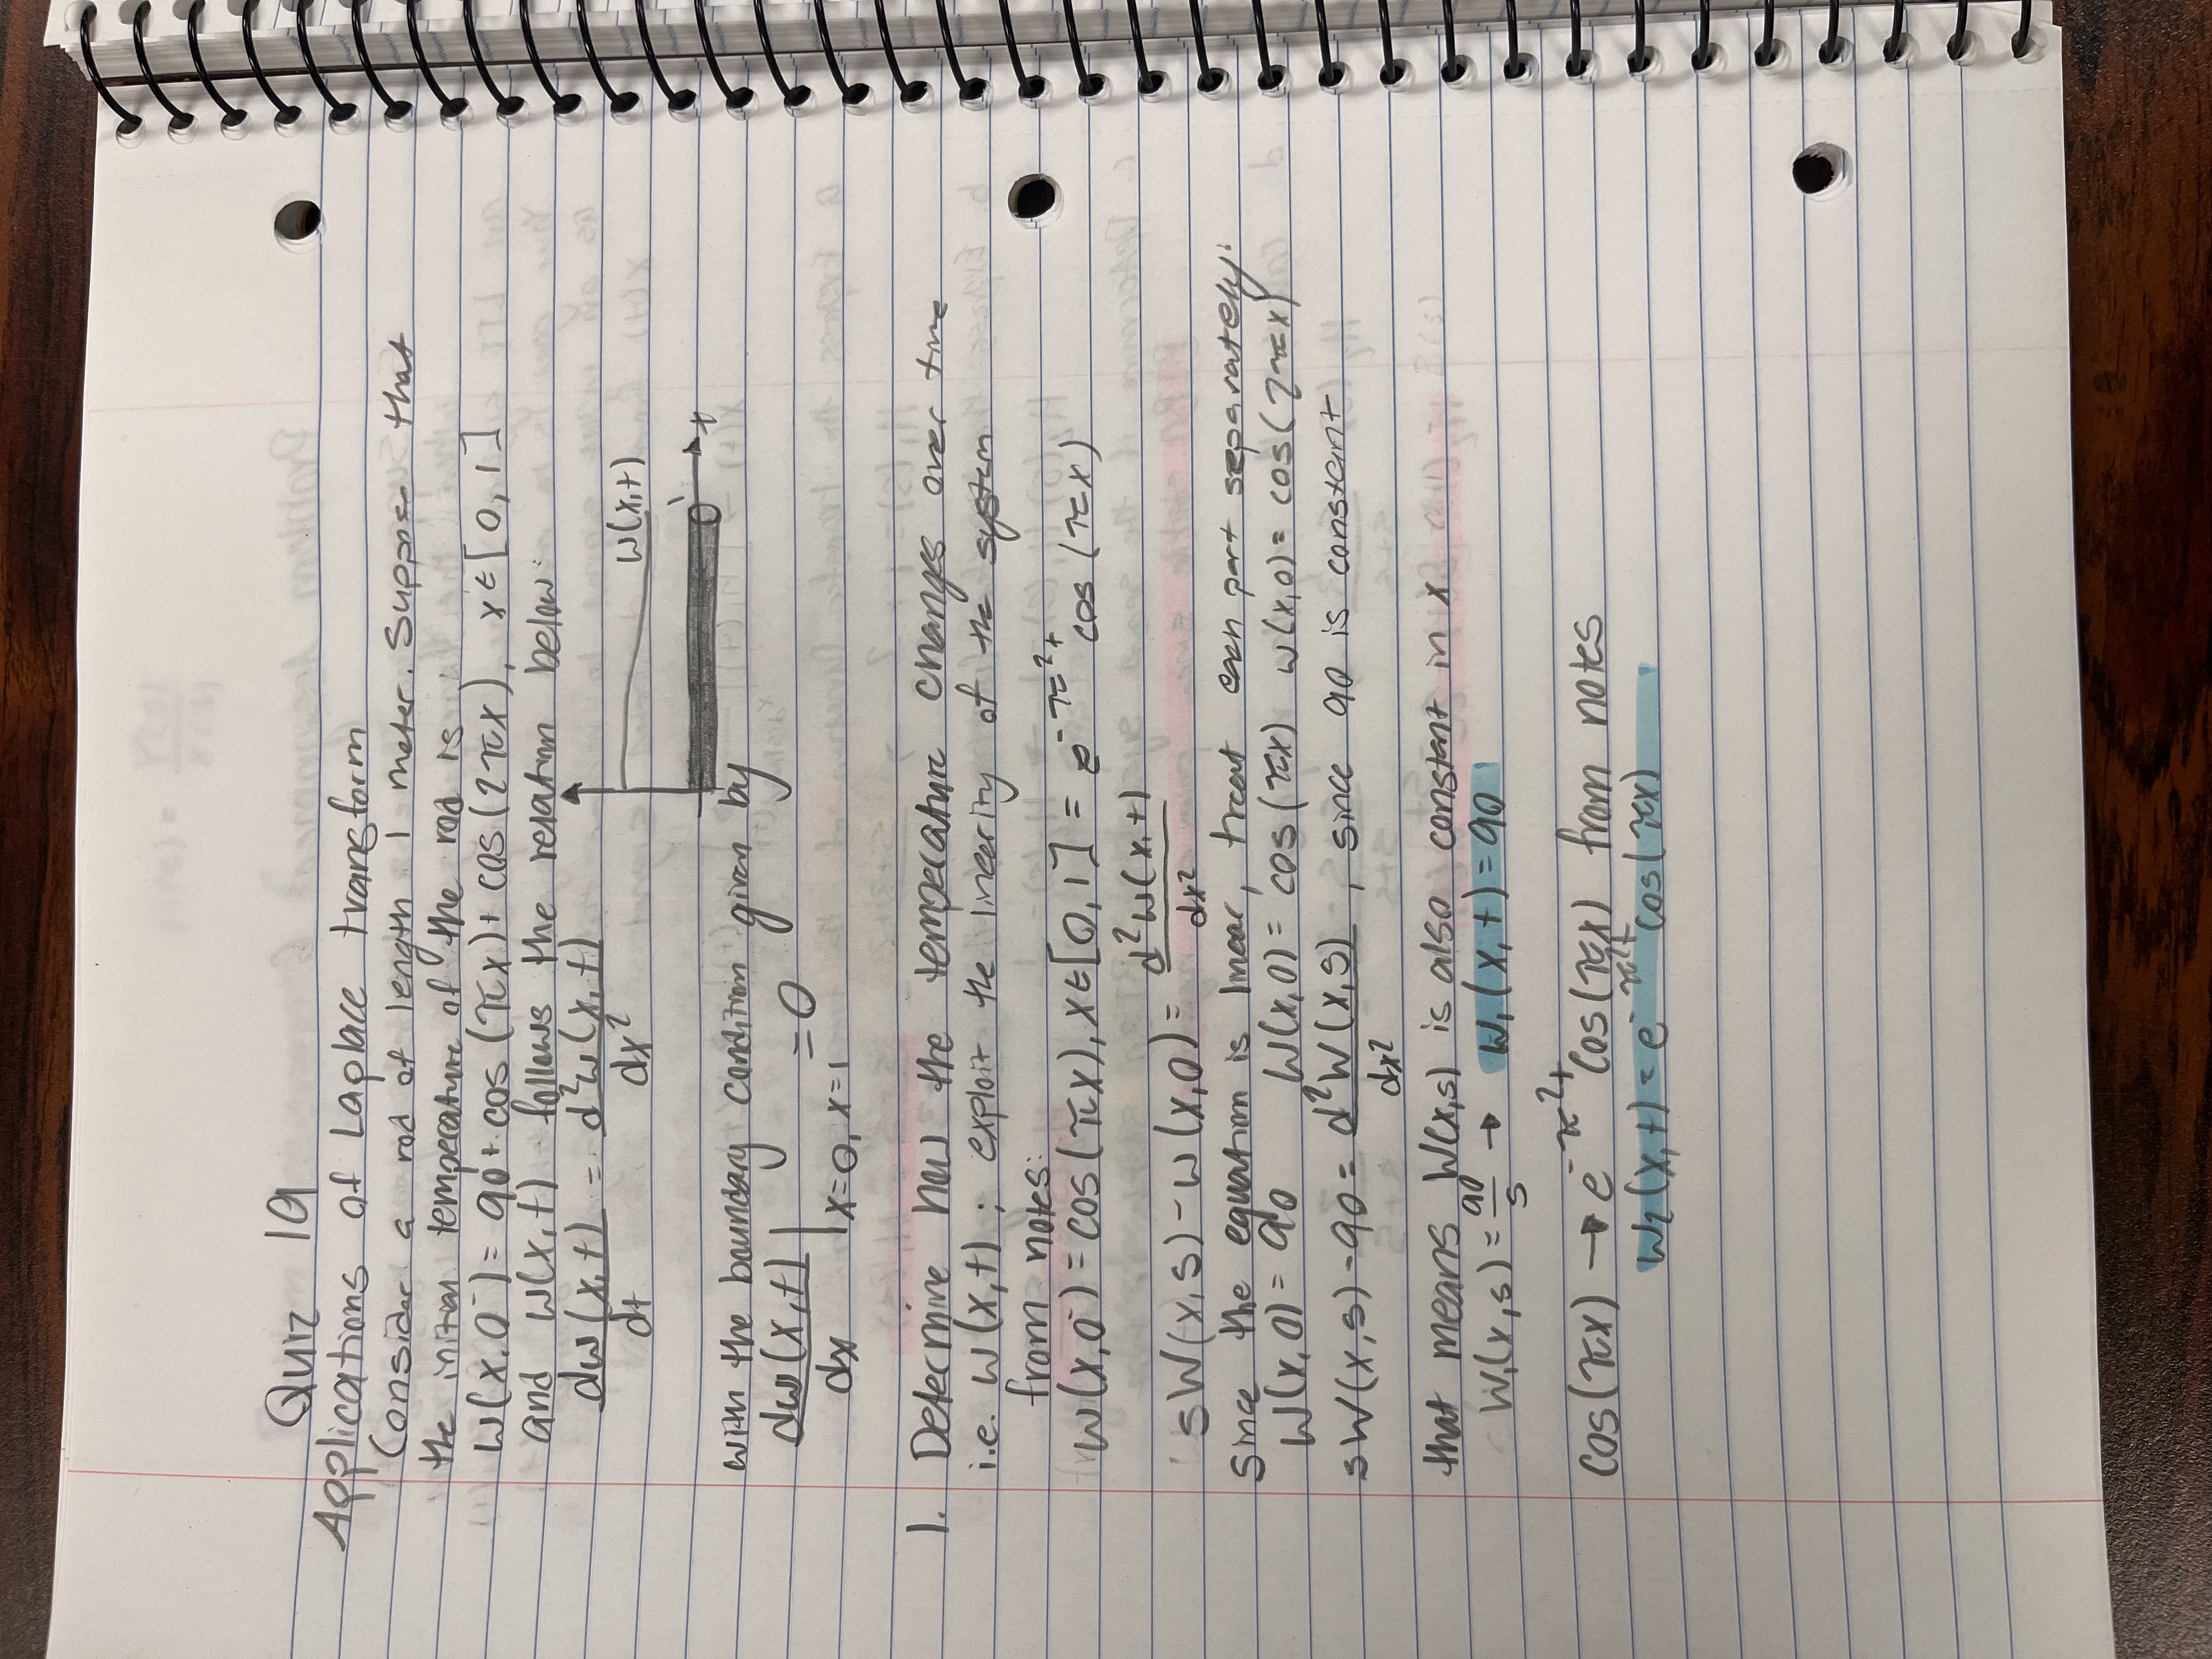 Quiz 19
Applications of Laplace transform
Consider a rod of length 1 meter. Suppose that
the initial temperature of the rod is
W(x,0⁻) = 90 + cos(πx) + cos(2πx), x∈[0,1]
and w(x,t) follows the relation below:
dw(x,t)/dt = d²w(x,t)/dx²
w(x,t)
1
x
with the boundary condition given by
dw(x,t)/dx |x=0, x=1 = 0
1. Determine how the temperature changes over time
i.e. w(x,t); exploit the linearity of the system
from notes:
w(x,0⁻) = cos(πx), x∈[0,1] = e^-π²t cos(πx)
sW(x,s) - w(x,0) = d²w(x,t)/dx²
since the equation is linear, treat each part separately:
W(x,0) = 90 W(x,0) = cos(πx) w(x,0) = cos(2πx)
sW(x,s) - 90 = d²W(x,s)/dx², since 90 is constant
that means W(x,s) is also constant in x
W₁(x,s) = 90/s → w₁(x,t) = 90
cos(πx) → e^-π²t cos(πx) from notes
w₂(x,t) = e^-π²t cos(πx)